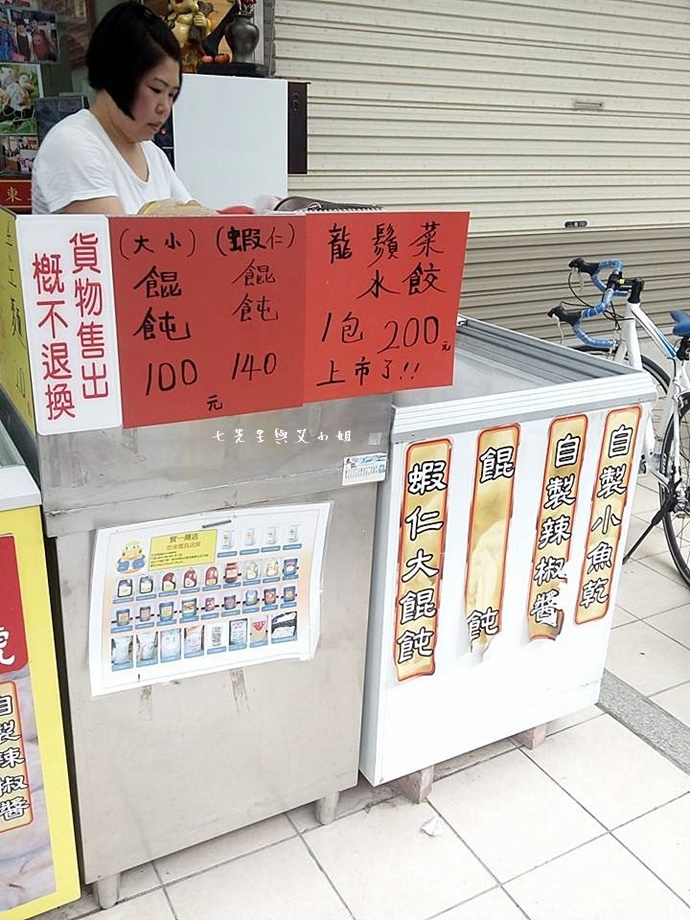 貨物售出
概不退換
(大小)
餛
飩
100元
(蝦仁)
餛
飩
140
龍鬚菜
水餃
1包200元
上市了!!
七先生與艾小姐
蝦仁大餛飩
餛飩
自製辣椒醬
自製小魚乾
自製辣椒醬
東